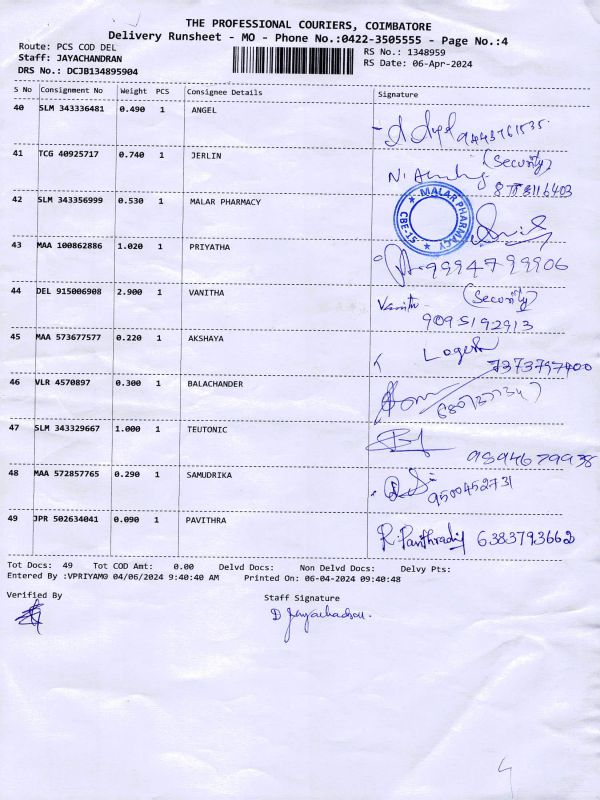 THE PROFESSIONAL COURIERS, COIMBATORE
Delivery Runsheet - MO - Phone No.:0422-3505555 - Page No.:4
Route: PCS COD DEL
RS No.: 1348959
Staff: JAYACHANDRAN
RS Date: 06-Apr-2024
DRS No.: DCJB134895904
S No Consignment No Weight PCS Consignee Details Signature
40 SLM 343336481 0.490 1 ANGEL
9443761535
41 TCG 40925717 0.740 1 JERLIN
(Security)
42 SLM 343356999 0.530 1 MALAR PHARMACY
MALAR PHARMACY
CBE-15
43 MAA 100862886 1.020 1 PRIYATHA
9994799906
44 DEL 915006908 2.900 1 VANITHA
(Security)
9095192913
45 MAA 573677577 0.220 1 AKSHAYA
Logesh
7373797400
46 VLR 4570897 0.300 1 BALACHANDER
47 SLM 343329667 1.000 1 TEUTONIC
9894679938
48 MAA 572857765 0.290 1 SAMUDRIKA
9500452731
49 JPR 502634041 0.090 1 PAVITHRA
6383793662
Tot Docs: 49 Tot COD Amt: 0.00 Delvd Docs: Non Delvd Docs: Delvy Pts:
Entered By :VPRIYAM0 04/06/2024 9:40:40 AM Printed On: 06-04-2024 09:40:48
Verified By Staff Signature